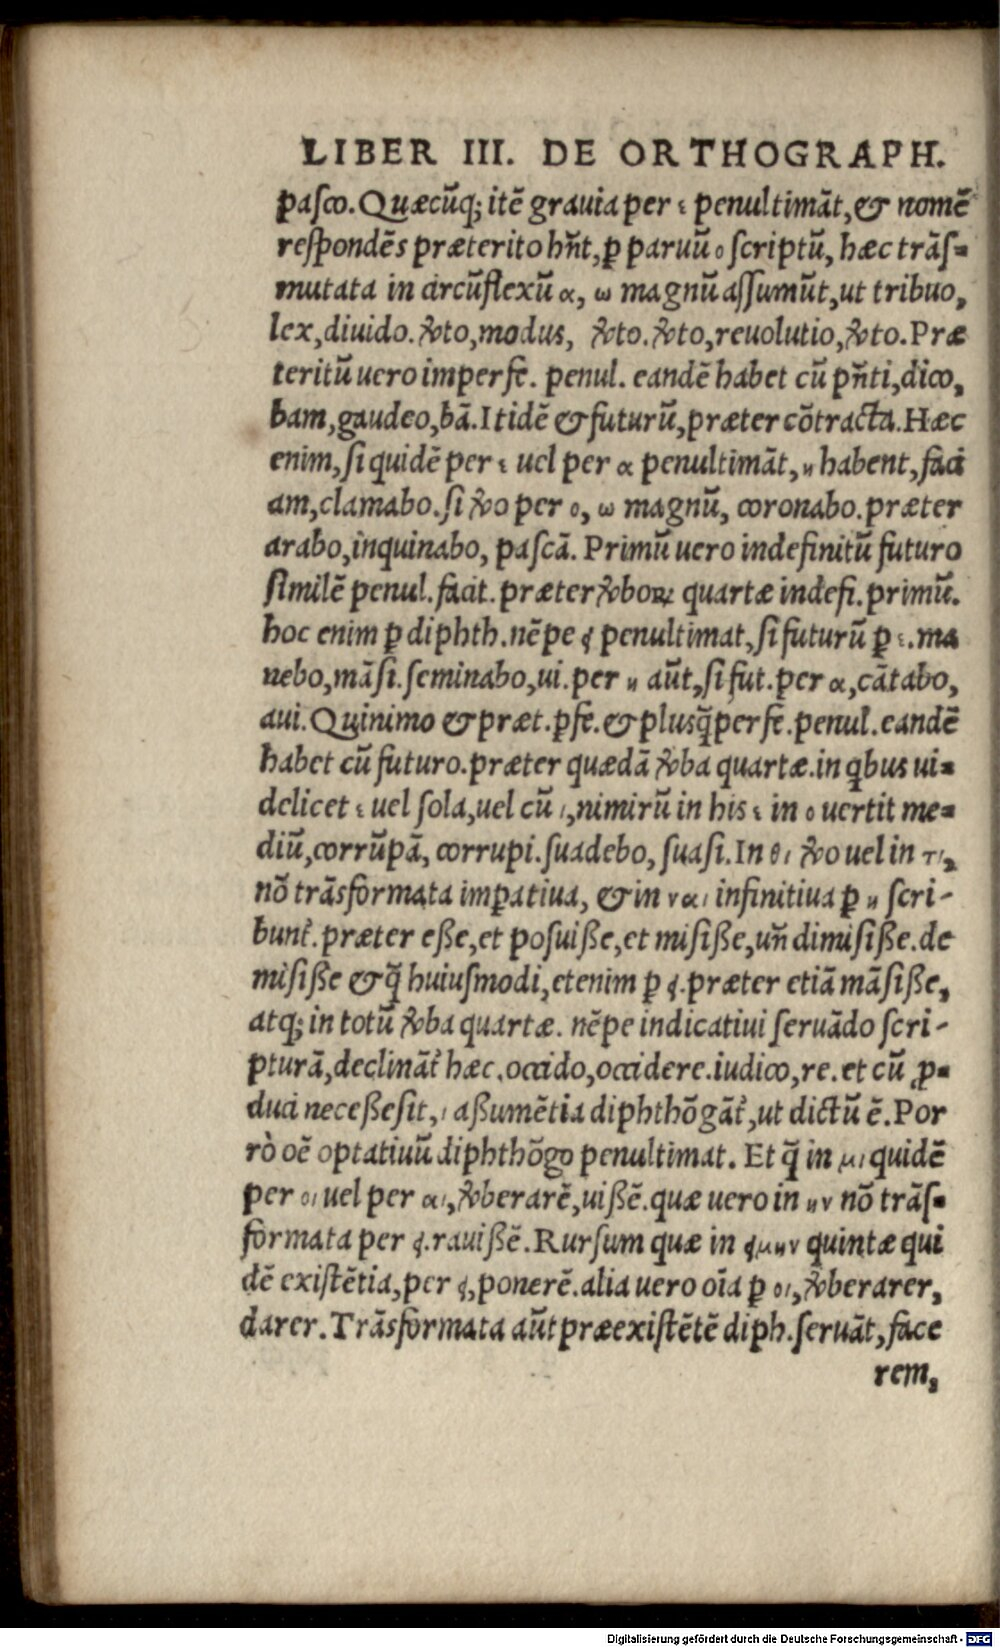 LIBER III. DE ORTHOGRAPH.
pasco. Quæcũq; itẽ grauia per ε penultimãt, & nomẽ
respondẽs præterito hñt, ꝑ paruũ ο scriptũ, hæc trãs-
mutata in circũflexũ α, ω magnũ assumũt, ut tribuo,
lex, diuido. ꝟto, modus, ꝟto. ꝟto, reuolutio, ꝟto. Præ
teritũ uero imperfe. penul. eandẽ habet cũ pñti, dico,
bam, gaudeo, bã. Itidẽ & futurũ, præter cõtracta. Hæc
enim, si quidẽ per ε uel per α penultimãt, η habent, faci
am, clamabo. si ꝟo per ο, ω magnũ, coronabo. præter
arabo, inquinabo, pascã. Primũ uero indefinitũ futuro
similẽ penul. facit. præter ꝟboꝝ quartæ indefi. primũ.
hoc enim ꝑ diphth. nẽpe ει penultimat, si futurũ ꝑ ε. ma
nebo, mãsi. seminabo, ui. per η aũt, si fut. per α, cãtabo,
aui. Quinimo & præt. ꝑfe. & plusq̃perfe. penul. eandẽ
habet cũ futuro. præter quædã ꝟba quartæ. in qbus ui-
delicet ε uel sola, uel cũ ι, nimirũ in his ε in ο uertit me-
diũ, corrũpã, corrupi. suadebo, suasi. In θι ꝟo uel in τι,
nõ trãsformata imꝑatiua, & in ναι infinitiua ꝑ η scri-
bunt̃. præter eße, et posuiße, et misiße, uñ dimisiße. de
misiße & q̃ huiusmodi, etenim ꝑ ει. præter etiã mãsiße,
atq; in totũ ꝟba quartæ. nẽpe indicatiui seruãdo scri-
pturã, declinãt̃ hæc. occido, occidere. iudico, re. et cũ ꝓ-
duci neceße sit, ι aßumẽtia diphthõgãt̃, ut dictũ ẽ. Por
rò oẽ optatiuũ diphthõgo penultimat. Et q̃ in μι quidẽ
per οι uel per αι, ꝟberarẽ, uißẽ. quæ uero in ην nõ trãs-
formata per ει. rauißẽ. Rursum quæ in ειμην quintæ qui
dẽ existẽtia, per ει, ponerẽ. alia uero oĩa ꝑ οι, ꝟberarer,
darer. Trãsformata aũt præexistẽtẽ diph. seruãt, face
rem,
Digitalisierung gefördert durch die Deutsche Forschungsgemeinschaft - DFG